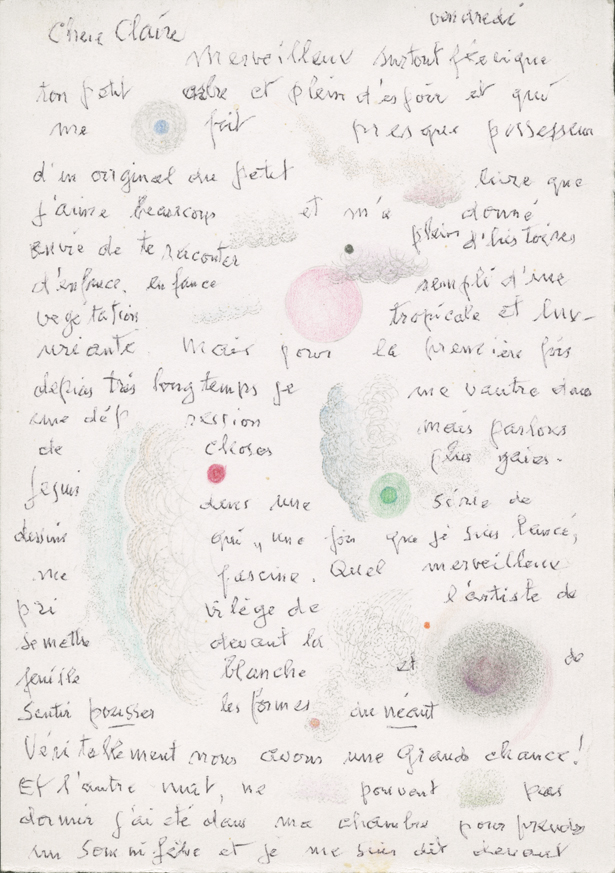 vendredi
Chere Claire
Merveilleux surtout féerique
ton petit arbre et plein d'espoir et qui
me fait presque possesseur
d'un original du petit livre que
j'aime beaucoup et m'a donné
envie de te raconter plein d'histoires
d'enfance. enfance rempli d'une
vegetation tropicale et lux-
uriante. Mais pour la première fois
depuis très longtemps je me vautre dans
une dép ression mais parlons
de choses plus gaies.
Je suis dans une série de
dessins qui, une fois que je suis lancé,
me fascine. Quel merveilleux
pri vilège de l'artiste de
se mettre devant la
feuille blanche et de
sentir pousser les formes du néant
Véritablement nous avons une grande chance!
Et l'autre nuit, ne pouvant pas
dormir j'ai été dans ma chambre pour prendre
un somnifère et je me suis dit devant